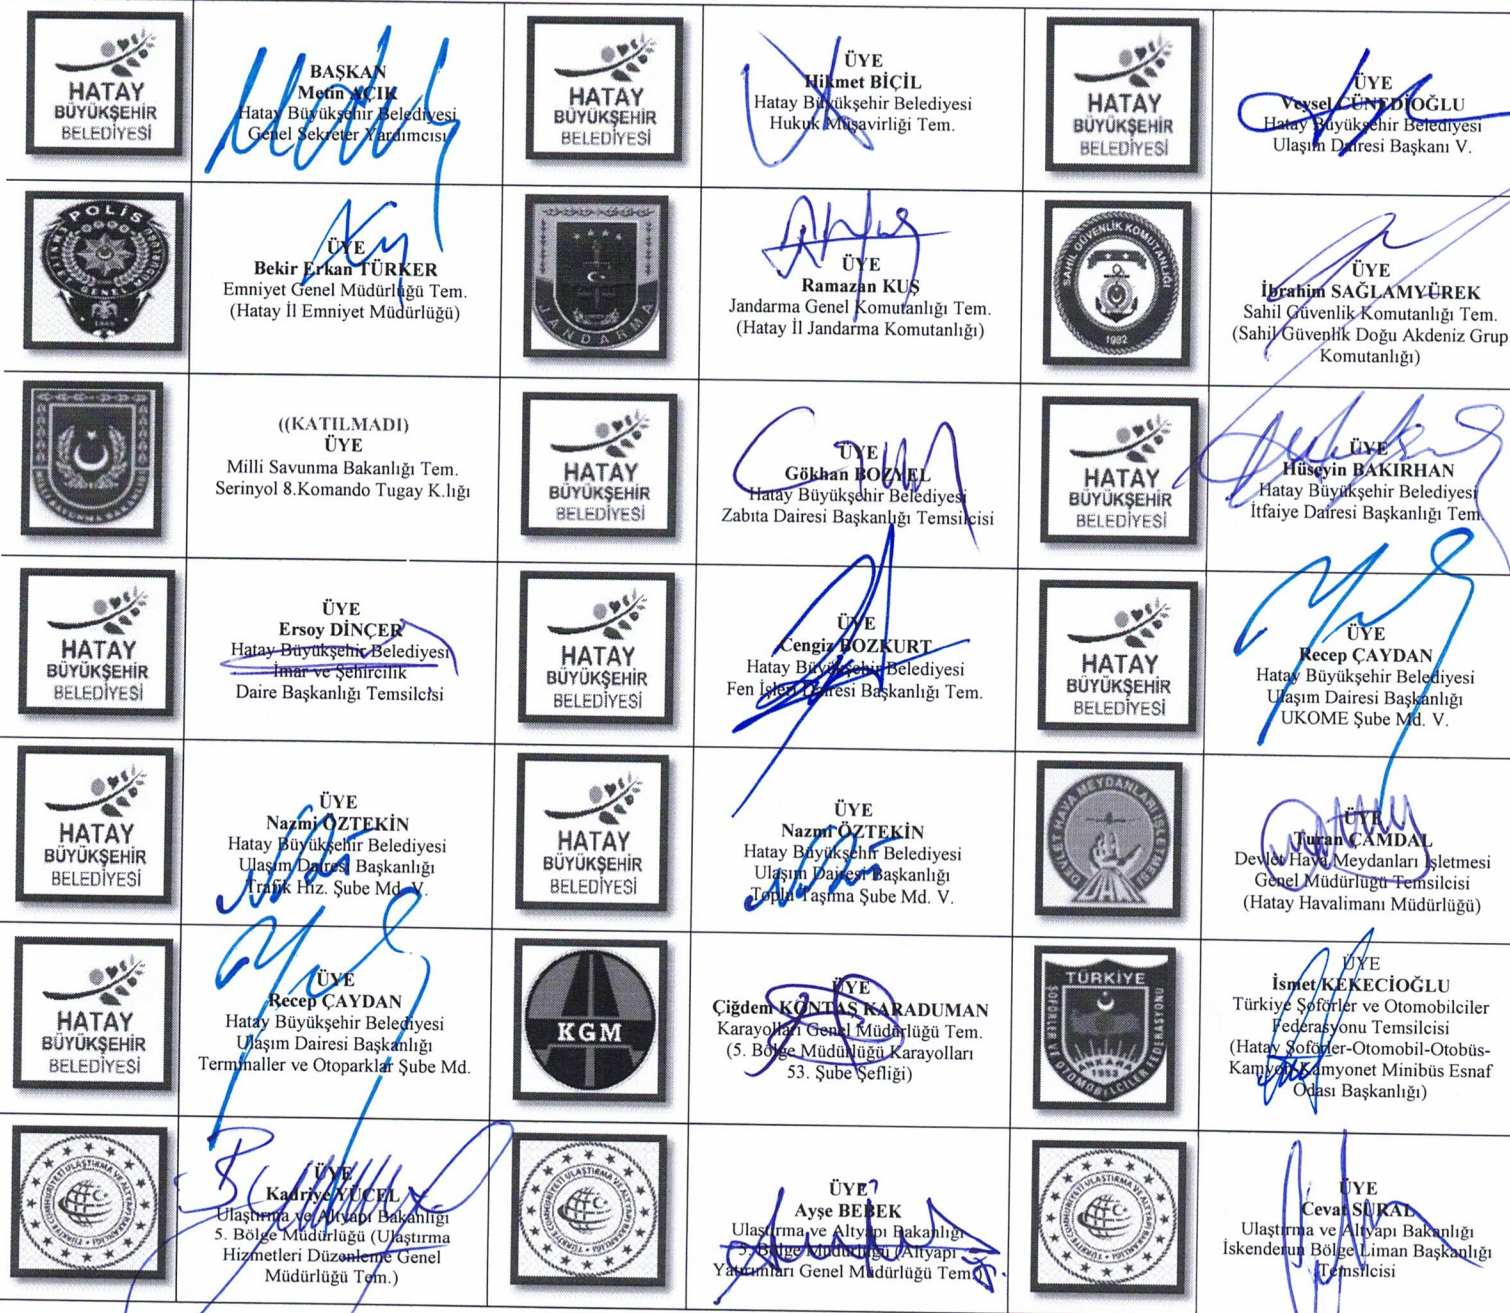 HATAY
BÜYÜKŞEHİR
BELEDİYESİ
BAŞKAN
Metin AÇIK
Hatay Büyükşehir Belediyesi
Genel Sekreter Yardımcısı
HATAY
BÜYÜKŞEHİR
BELEDİYESİ
ÜYE
Hikmet BİÇİL
Hatay Büyükşehir Belediyesi
Hukuk Müşavirliği Tem.
HATAY
BÜYÜKŞEHİR
BELEDİYESİ
ÜYE
Veysel CÜNEDİOĞLU
Hatay Büyükşehir Belediyesi
Ulaşım Dairesi Başkanı V.
POLİS
ÜYE
Bekir Erkan TÜRKER
Emniyet Genel Müdürlüğü Tem.
(Hatay İl Emniyet Müdürlüğü)
JANDARMA
ÜYE
Ramazan KUŞ
Jandarma Genel Komutanlığı Tem.
(Hatay İl Jandarma Komutanlığı)
SAHİL GÜVENLİK KOMUTANLIĞI
1982
ÜYE
İbrahim SAĞLAMYÜREK
Sahil Güvenlik Komutanlığı Tem.
(Sahil Güvenlik Doğu Akdeniz Grup
Komutanlığı)
((KATILMADI)
ÜYE
Milli Savunma Bakanlığı Tem.
Serinyol 8.Komando Tugay K.lığı
HATAY
BÜYÜKŞEHİR
BELEDİYESİ
ÜYE
Gökhan BOZYEL
Hatay Büyükşehir Belediyesi
Zabıta Dairesi Başkanlığı Temsilcisi
HATAY
BÜYÜKŞEHİR
BELEDİYESİ
ÜYE
Hüseyin BAKIRHAN
Hatay Büyükşehir Belediyesi
İtfaiye Dairesi Başkanlığı Tem.
HATAY
BÜYÜKŞEHİR
BELEDİYESİ
ÜYE
Ersoy DİNÇER
Hatay Büyükşehir Belediyesi
İmar ve Şehircilik
Daire Başkanlığı Temsilcisi
HATAY
BÜYÜKŞEHİR
BELEDİYESİ
ÜYE
Cengiz BOZKURT
Hatay Büyükşehir Belediyesi
Fen İşleri Dairesi Başkanlığı Tem.
HATAY
BÜYÜKŞEHİR
BELEDİYESİ
ÜYE
Recep ÇAYDAN
Hatay Büyükşehir Belediyesi
Ulaşım Dairesi Başkanlığı
UKOME Şube Md. V.
HATAY
BÜYÜKŞEHİR
BELEDİYESİ
ÜYE
Nazmi ÖZTEKİN
Hatay Büyükşehir Belediyesi
Ulaşım Dairesi Başkanlığı
Trafik Hız. Şube Md. V.
HATAY
BÜYÜKŞEHİR
BELEDİYESİ
ÜYE
Nazmi ÖZTEKİN
Hatay Büyükşehir Belediyesi
Ulaşım Dairesi Başkanlığı
Toplu Taşıma Şube Md. V.
DEVLET HAVA MEYDANLARI İŞLETMESİ
ÜYE
Turan CAMDAL
Devlet Hava Meydanları İşletmesi
Genel Müdürlüğü Temsilcisi
(Hatay Havalimanı Müdürlüğü)
HATAY
BÜYÜKŞEHİR
BELEDİYESİ
ÜYE
Recep ÇAYDAN
Hatay Büyükşehir Belediyesi
Ulaşım Dairesi Başkanlığı
Terminaller ve Otoparklar Şube Md.
KGM
ÜYE
Çiğdem KONTAŞ KARADUMAN
Karayolları Genel Müdürlüğü Tem.
(5. Bölge Müdürlüğü Karayolları
53. Şube Şefliği)
TÜRKİYE
ŞOFÖRLER VE OTOMOBİLCİLER FEDERASYONU
1953
ÜYE
İsmet KEKECİOĞLU
Türkiye Şoförler ve Otomobilciler
Federasyonu Temsilcisi
(Hatay Şoförler-Otomobil-Otobüs-
Kamyon-Kamyonet Minibüs Esnaf
Odası Başkanlığı)
TÜRKİYE CUMHURİYETİ ULAŞTIRMA VE ALTYAPI BAKANLIĞI
ÜYE
Kadriye YÜCEL
Ulaştırma ve Altyapı Bakanlığı
5. Bölge Müdürlüğü (Ulaştırma
Hizmetleri Düzenleme Genel
Müdürlüğü Tem.)
TÜRKİYE CUMHURİYETİ ULAŞTIRMA VE ALTYAPI BAKANLIĞI
ÜYE
Ayşe BEBEK
Ulaştırma ve Altyapı Bakanlığı
5. Bölge Müdürlüğü (Altyapı
Yatırımları Genel Müdürlüğü Tem.)
TÜRKİYE CUMHURİYETİ ULAŞTIRMA VE ALTYAPI BAKANLIĞI
ÜYE
Cevat SURAL
Ulaştırma ve Altyapı Bakanlığı
İskenderun Bölge Liman Başkanlığı
Temsilcisi